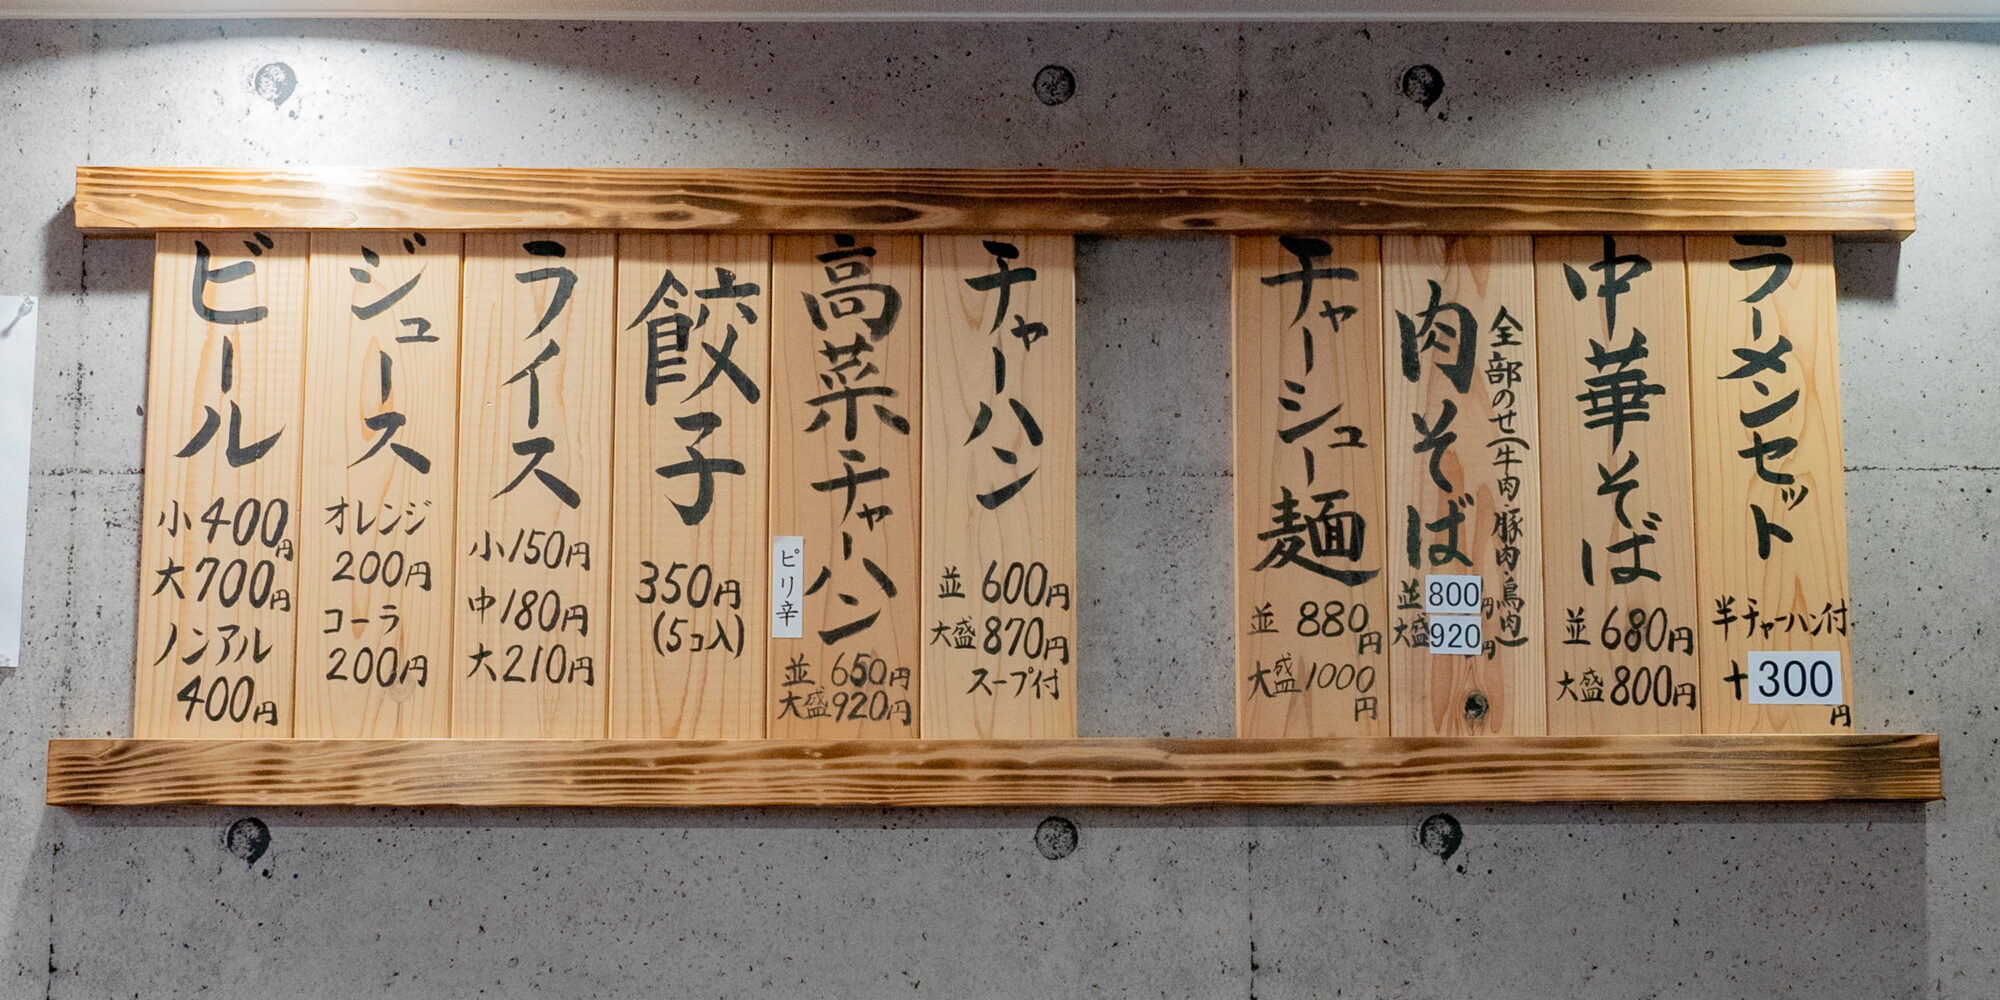 ラーメンセット
半チャーハン付
+300円
中華そば
並 680円
大盛 800円
全部のせ(牛肉・豚肉・鳥肉)
肉そば
並 800円
大盛 920円
チャーシュー麺
並 880円
大盛 1000円
チャーハン
並 600円
大盛 870円
スープ付
高菜チャーハン
ピリ辛
並 650円
大盛 920円
餃子
350円
(5コ入)
ライス
小 150円
中 180円
大 210円
ジュース
オレンジ
200円
コーラ
200円
ビール
小 400円
大 700円
ノンアル
400円